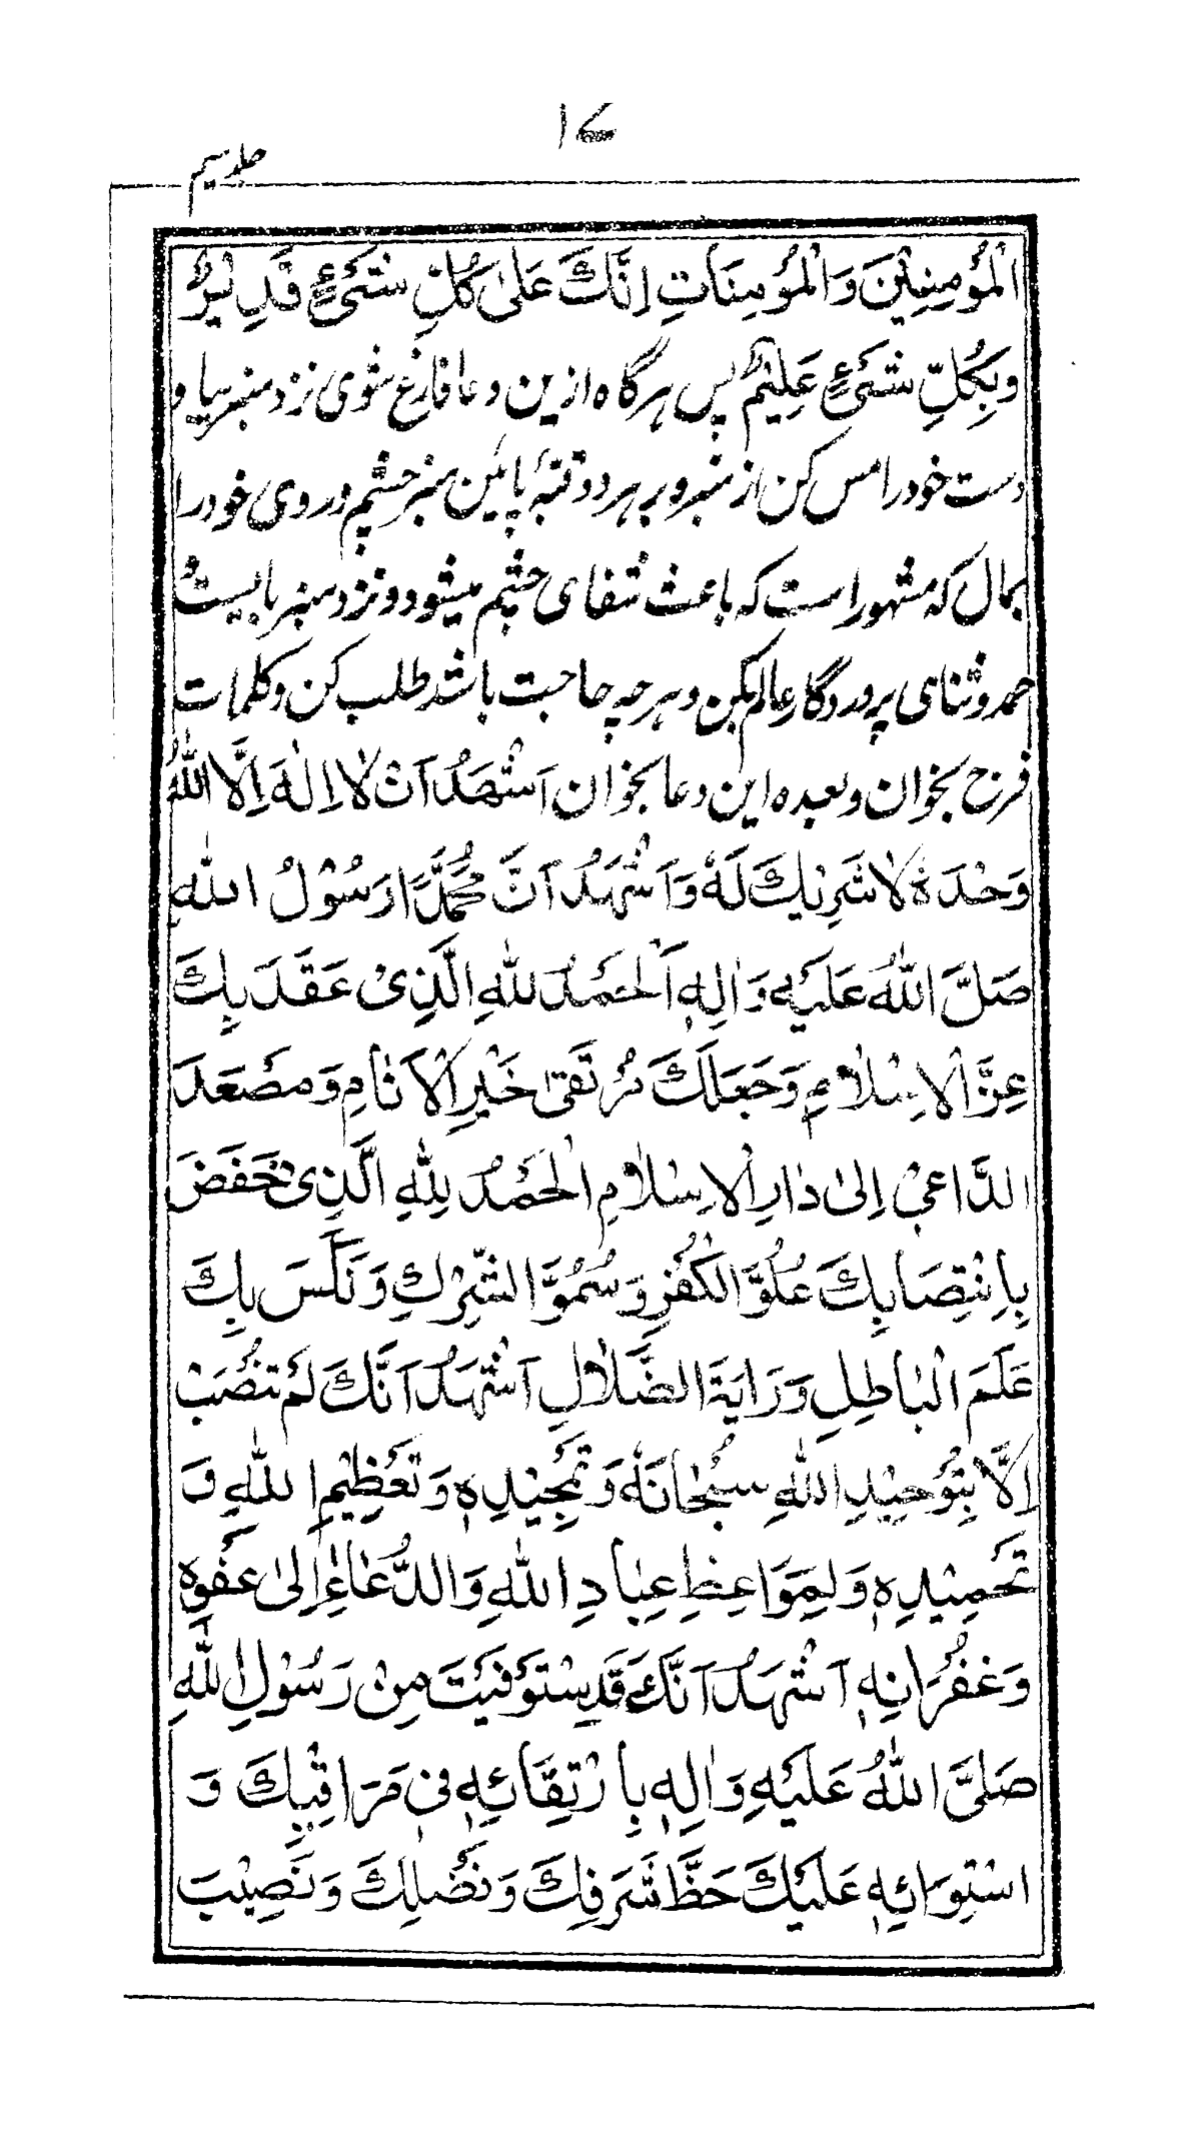 ۱۷
جلد سیم
الْمُؤْمِنِیْنَ وَالْمُؤْمِنَاتِ اِنَّكَ عَلٰی كُلِّ شَیْءٍ قَدِیْرٌ
وَبِكُلِّ شَیْءٍ عَلِیْمٌ پس هرگاه ازین دعا فارغ شوی نزد منبر بیا و
دست خود را مس کن از منبر و بر هر دو قبّهٔ پائین منبر چشم و روی خود را
بمال که مشهور است که باعث شفای چشم میشود و نزد منبر بایست
حمد و ثنای پروردگار عالم بکن و هرچه حاجت باشد طلب کن و کلمات
فرج بخوان و بعده این دعا بخوان اَشْهَدُ اَنْ لَا اِلٰهَ اِلَّا اللّٰهُ
وَحْدَهٗ لَا شَرِیْكَ لَهٗ وَاَشْهَدُ اَنَّ مُحَمَّدًا رَسُوْلُ اللّٰهِ
صَلَّ اللّٰهُ عَلَیْهِ وَاٰلِهٖ اَلْحَمْدُ لِلّٰهِ الَّذِیْ عَقَدَ بِكَ
عِزَّ الْاِسْلَامِ وَجَعَلَكَ مُرْتَقٰی خَیْرِ الْاَنَامِ وَمَصْعَدَ
الدَّاعِیْ اِلٰی دَارِ الْاِسْلَامِ الْحَمْدُ لِلّٰهِ الَّذِیْ خَفَضَ
بِاِنْتِصَابِكَ عُلُوَّ الْكُفْرِ وَسُمُوَّ الشِّرْكِ وَنَكَسَ بِكَ
عَلَمَ الْبَاطِلِ وَرَایَةَ الضَّلَالِ اَشْهَدُ اَنَّكَ لَمْ تُنْصَبْ
اِلَّا بِتَوْحِیْدِ اللّٰهِ سُبْحَانَهٗ وَتَمْجِیْدِهٖ وَتَعْظِیْمِ اللّٰهِ وَ
تَحْمِیْدِهٖ وَلِمَوَاعِظِ عِبَادِ اللّٰهِ وَالدُّعَاءِ اِلٰی عَفْوِهٖ
وَغُفْرَانِهٖ اَشْهَدُ اَنَّكَ قَدِ سْتَوْفَیْتَ مِنْ رَسُوْلِ اللّٰهِ
صَلَّی اللّٰهُ عَلَیْهِ وَاٰلِهٖ بِارْتِقَائِهٖ فِیْ مَرَاقِیْكَ وَ
اسْتِوَائِهٖ عَلَیْكَ حَظَّ شَرَفِكَ وَفَضْلِكَ وَنَصِیْبَ